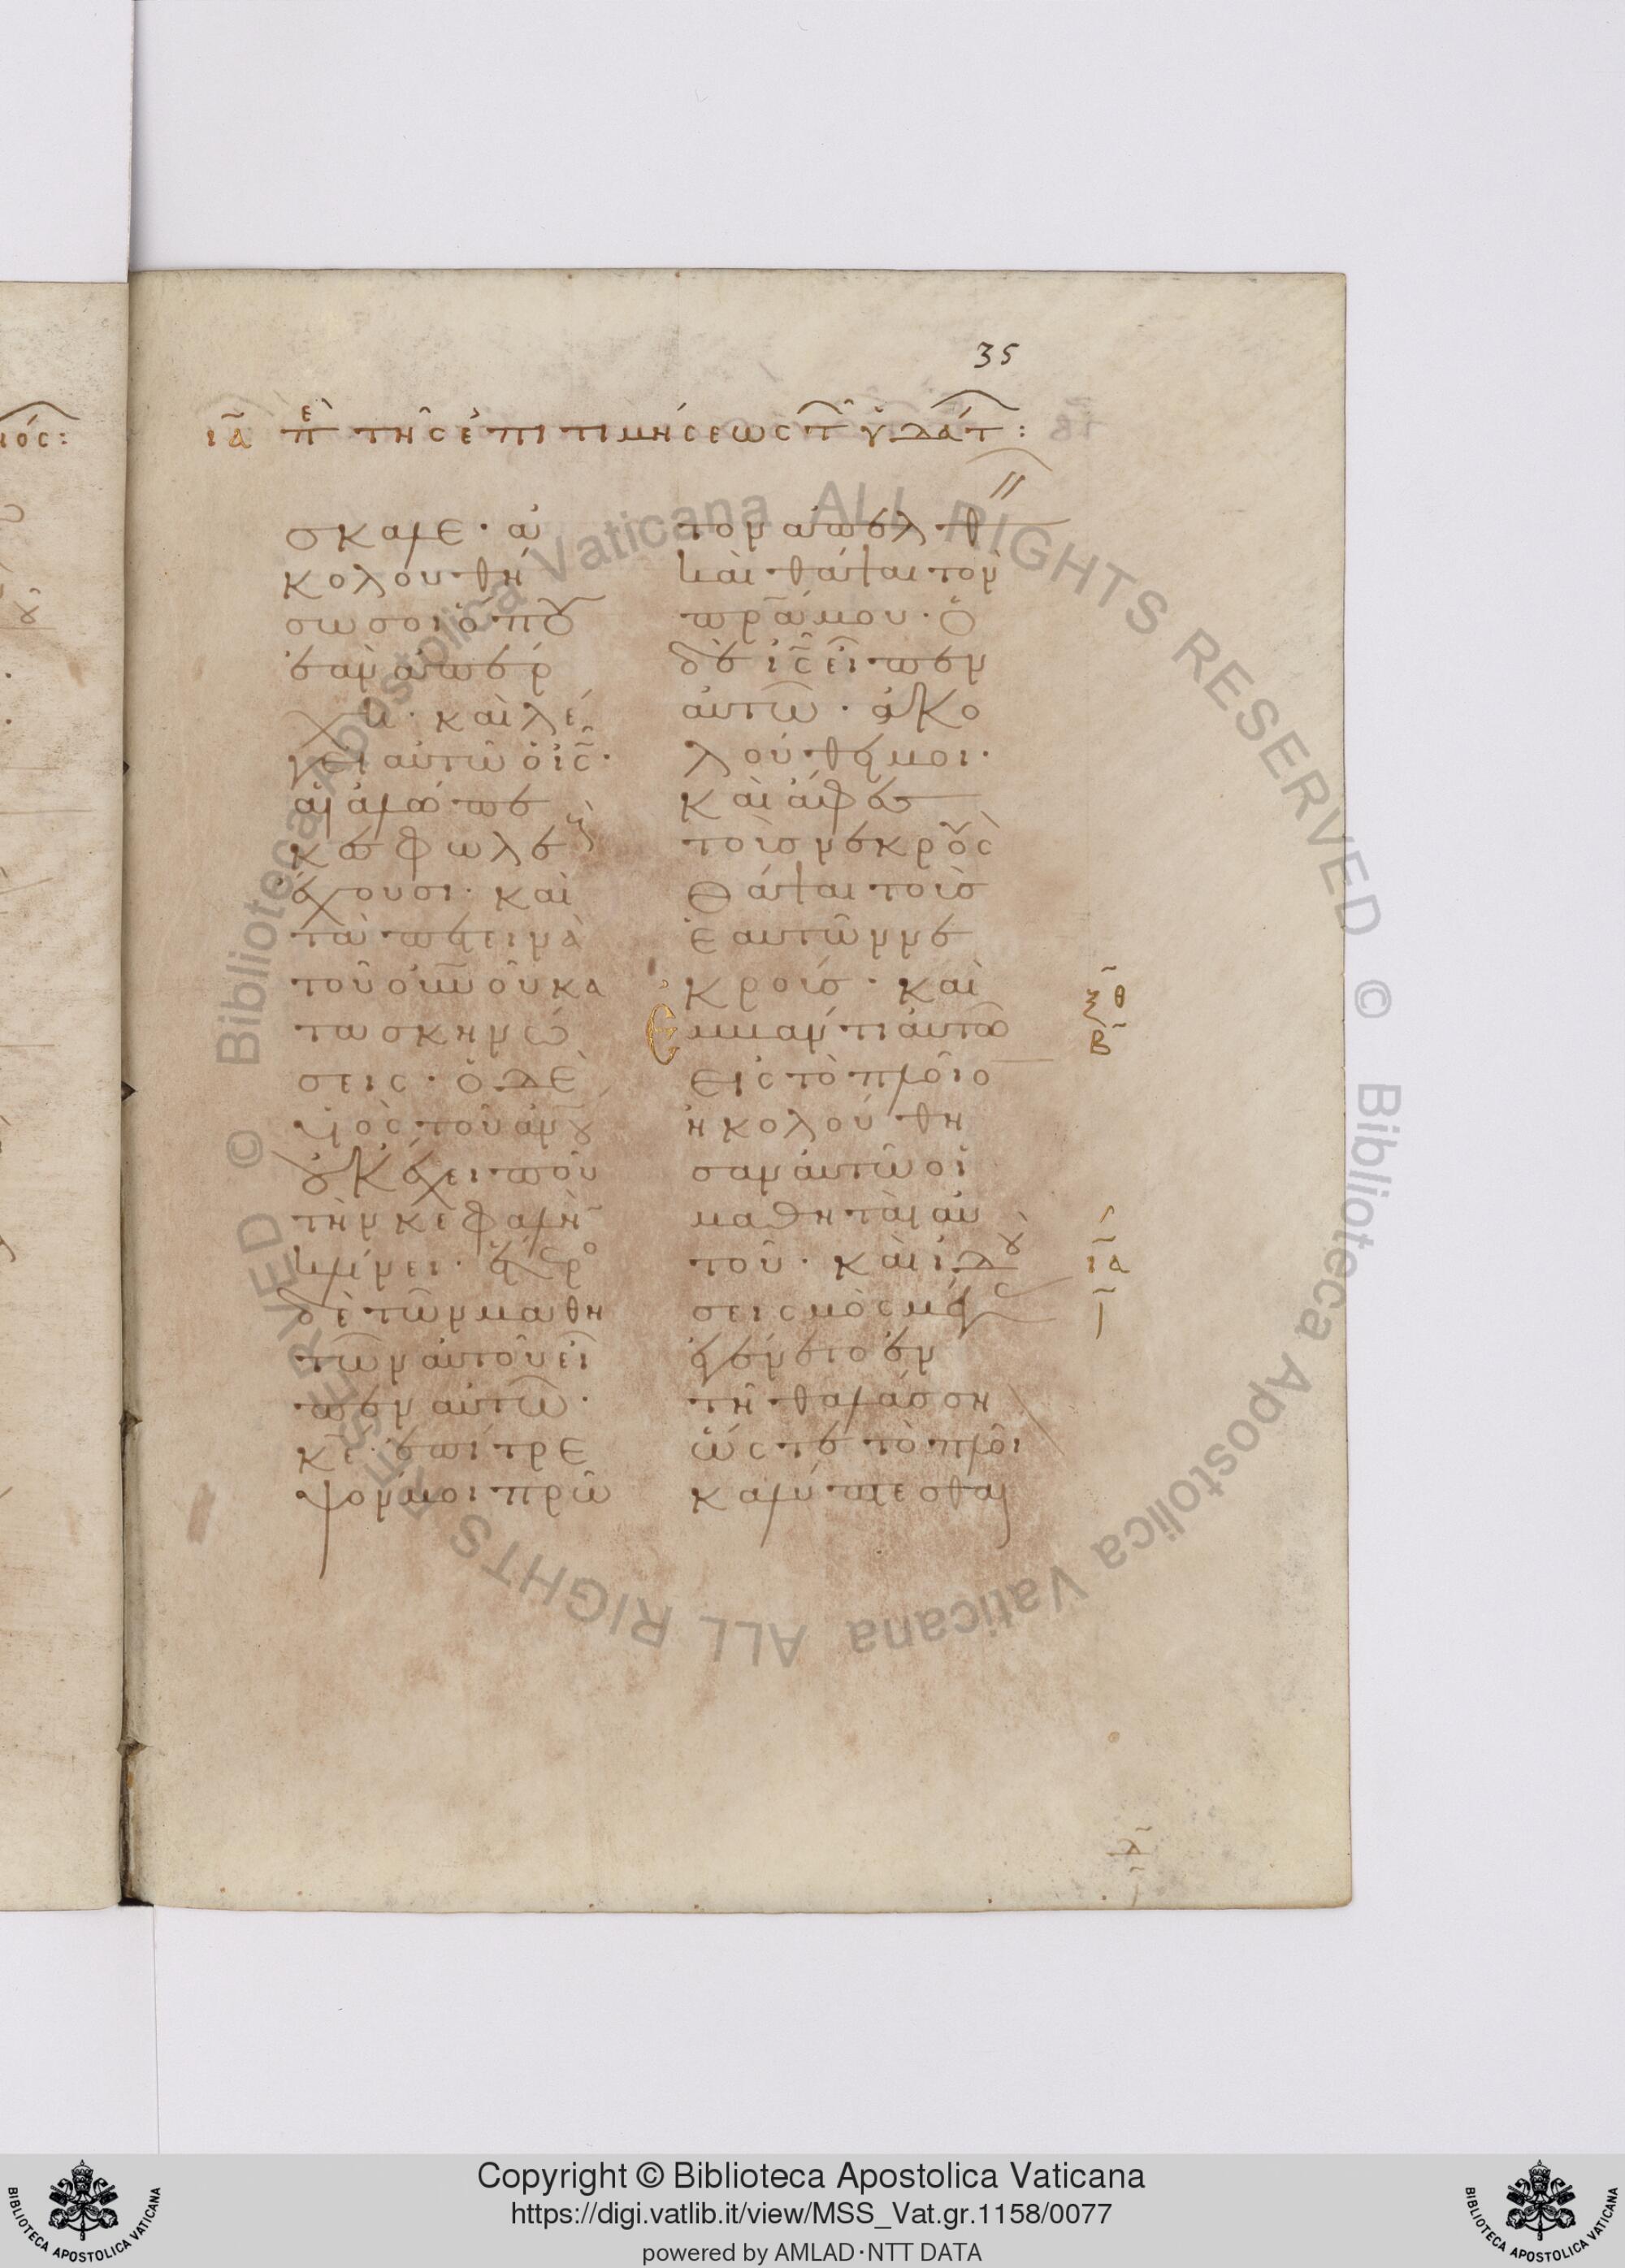 35
ια̃ πὲ τῆς ἐπιτιμήσεως τ̑ ὑδάτ:
σκαλε· ἀ
κολουθή
σω σοι ὅπου
ἐὰν ἀπέρ
χη· καὶ λέ
γει αὐτῶ ὁ ις̃·
αἱ ἀλώπε
κες φωλε
ἔχουσι· καὶ
τὰ πετεινὰ
τοῦ οὐνοῦ κα
τασκηνώ
σεις· ὁ δὲ
υἱὸς τοῦ ἀνου
οὐκ ἔχει ποῦ
τὴν κεφαλὴ
κλίνει· ἕτερο
δὲ τῶν μαθη
τῶν αὐτοῦ εἶ
πεν αὐτῶ·
κε̃ ἐπίτρε
ψόν μοι πρῶ
τον ἀπελθ
καὶ θάψαι τὸν
πρ̃α μου· ὁ
δὲ ις̃ εἶπεν
αὐτῶ· ἀκο
λούθει μοι·
καὶ ἄφες
τοὺς νεκροὺς
θάψαι τοὺς
ἑαυτῶν νε
κρούς· καὶ
Ἐμβάντι αὐτῶ
ξθ̃
β̃
εἰς τὸ πλοῖο
ἠκολούθη
σαν αὐτῶ οἱ
μαθηταὶ αὐ
τοῦ· καὶ ἰδοὺ
ια̃
σεισμὸς μέγας
ἐγένετο ἐν
τῆ θαλάσση
ὥστε τὸ πλοῖ
καλύπτεσθαι
Copyright © Biblioteca Apostolica Vaticana
https://digi.vatlib.it/view/MSS_Vat.gr.1158/0077
powered by AMLAD·NTT DATA